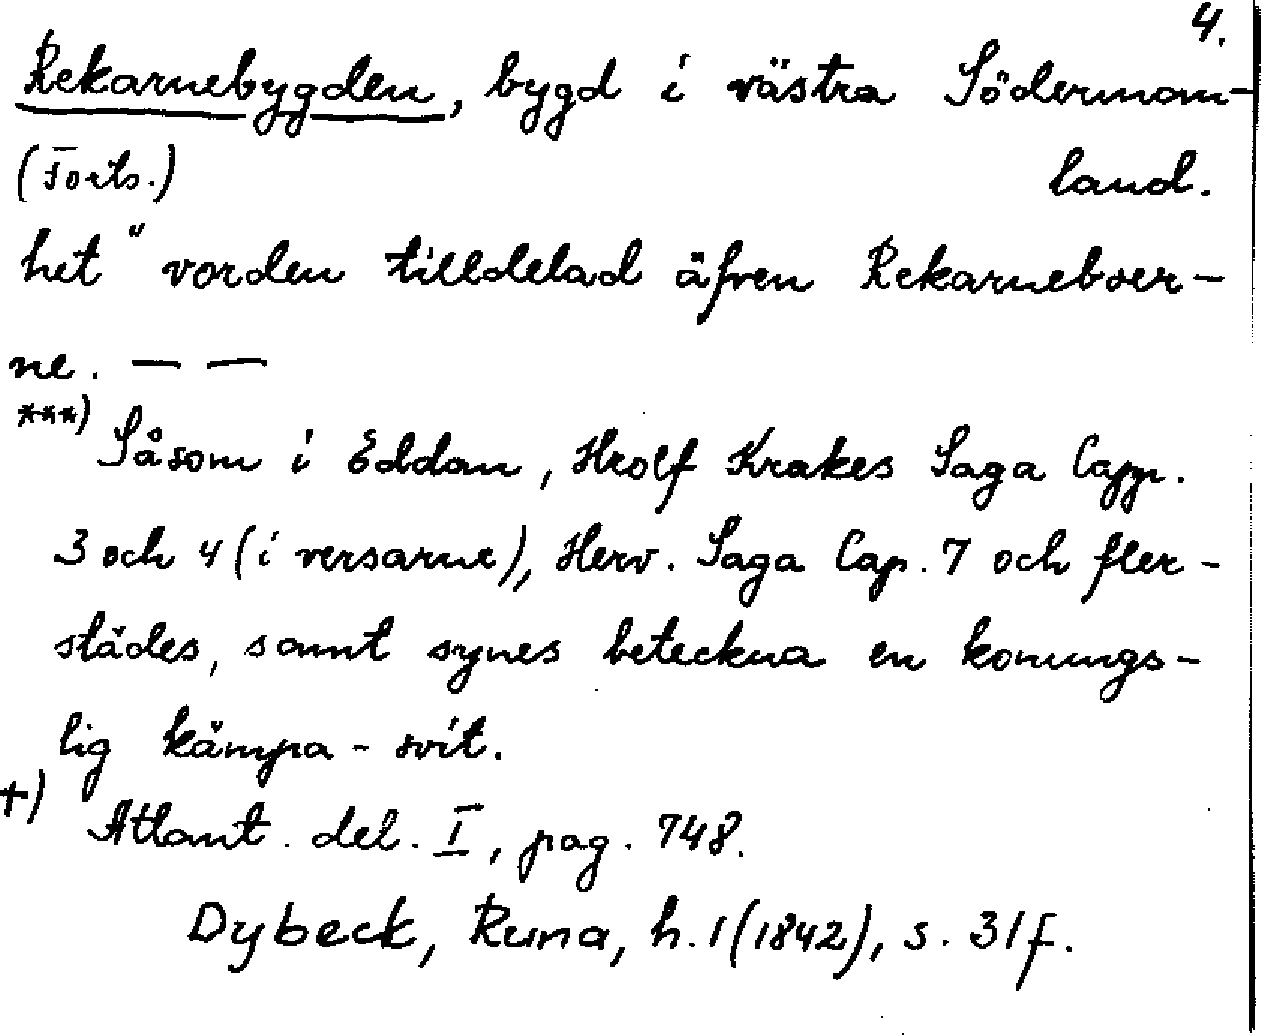 4.
Rekarnebygden, bygd i västra Söderman-
(Forts.) land.
het" vorden tilldelad äfven Rekarneboer-
ne. — —
***) Såsom i Eddan, Hrolf Krakes Saga Capp.
3 och 4 (i versarne), Herv. Saga Cap. 7 och fler-
städes, samt synes beteckna en konungs-
lig kämpa-svit.
+) Atlant. del. I, pag. 748.
Dybeck, Runa, h. 1 (1842), s. 31 f.